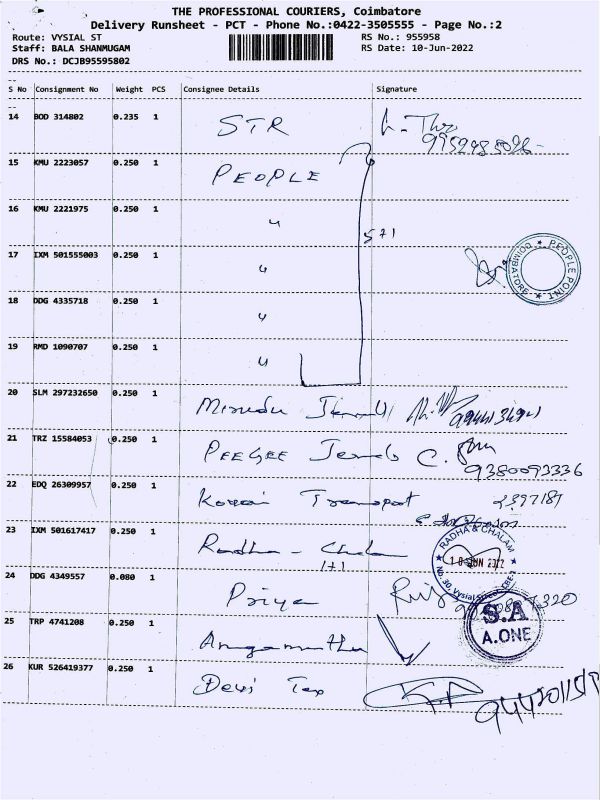 THE PROFESSIONAL COURIERS, Coimbatore
Delivery Runsheet - PCT - Phone No.:0422-3505555 - Page No.:2
Route: VYSIAL ST RS No.: 955958
Staff: BALA SHANMUGAM RS Date: 10-Jun-2022
DRS No.: DCJB95595802
S No Consignment No Weight PCS Consignee Details Signature
14 BOD 314802 0.235 1 STR
15 KMU 2223057 0.250 1 PEOPLE
16 KMU 2221975 0.250 1 "
5+1
17 IXM 501555003 0.250 1 "
PEOPLE POINT COIMBATORE
18 DDG 4335718 0.250 1 "
19 RMD 1090707 0.250 1 "
20 SLM 297232650 0.250 1
21 TRZ 15584053 0.250 1 PEEGEE
9380093336
22 EDQ 26309957 0.250 1 Kovai Transpot
23 IXM 501617417 0.250 1 Radha - Chalam
1+1
RADHA & CHALAM
No. 30, Vysial Street, CBE-1
24 DDG 4349557 0.080 1 Priya
S.A
A.ONE
25 TRP 4741208 0.250 1
26 KUR 526419377 0.250 1 Devi Tex